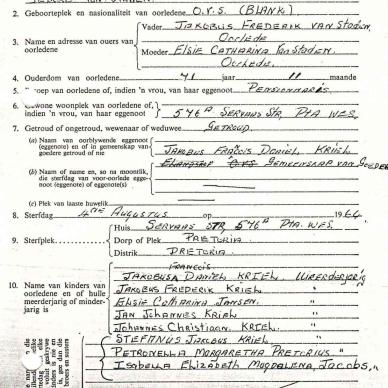 2. Geboorteplek en nasionaliteit van oorledene O.V.S. (BLANK)
Vader JAKOBUS FREDERIK VAN STADEN
Oorlede
3. Name en adresse van ouers van oorledene
Moeder ELSIE CATHARINA VAN STADEN
Oorlede.
4. Ouderdom van oorledene 41 jaar 11 maande
5. Beroep van oorledene, indien 'n vrou, van haar eggenoot PENSIONNARIS
6. Gewone woonplek van oorledene of, indien 'n vrou, van haar eggenoot 546A SERVAAS STR, PTA WES.
7. Getroud of ongetroud, wewenaar of weduwee GETROUD.
(a) Naam van oorblywende eggenoot (eggenote) en of in gemeenskap van goedere getroud of nie
JAKOBUS FRANCIS DANIEL KRIEL
GEMEENSKAP VAN GOEDER
(b) Naam of name en, so na moontlik, die sterfdag van voor-oorlede eggenoot (eggenote) of eggenoot(s)
(c) Plek van laaste huwelik
8. Sterfdag 4DE AUGUSTUS op 1964
Huis SERVAAS STR 546A PTA. WES.
9. Sterfplek Dorp of Plek PRETORIA
Distrik PRETORIA.
FRANCOIS
10. Name van kinders van oorledene en of hulle meerderjarig of minderjarig is
JAKOBUS DANIEL KRIEL. MEERDERJARIG
JAKOBUS FREDERIK KRIEL "
ELSIE CATHARINA JANSEN. "
JAN JOHANNES KRIEL "
JOHANNES CHRISTIAAN. KRIEL. "
STEFANUS JAKOBUS KRIEL "
PETRONELLA MARGARETHA PRETORIUS "
ISABELLA ELIZABETH MAGDALENA, JACOBS, "